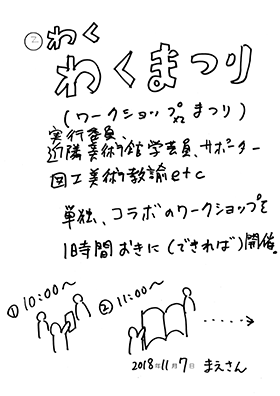 ②わく
わくまつり
(ワークショップまつり)
実行委員、
近隣美術館学芸員、サポーター
図工美術教諭etc
単独、コラボのワークショップを
1時間おきに(できれば)開催。
①10:00～
②11:00～
2018年11月7日 まえさん